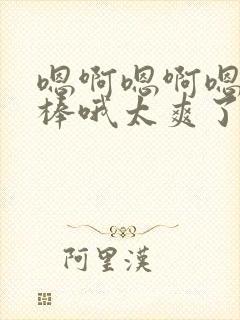 嗯啊嗯啊嗯
棒哦太爽了
阿里漢